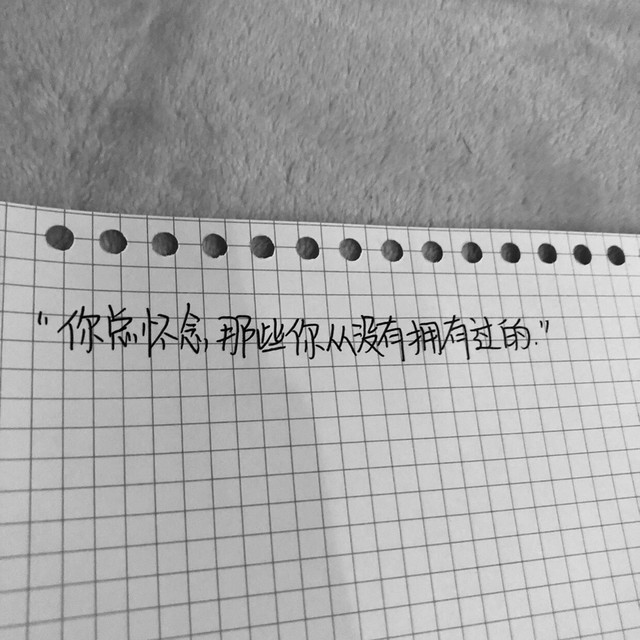 “你总怀念,那些你从没有拥有过的.”